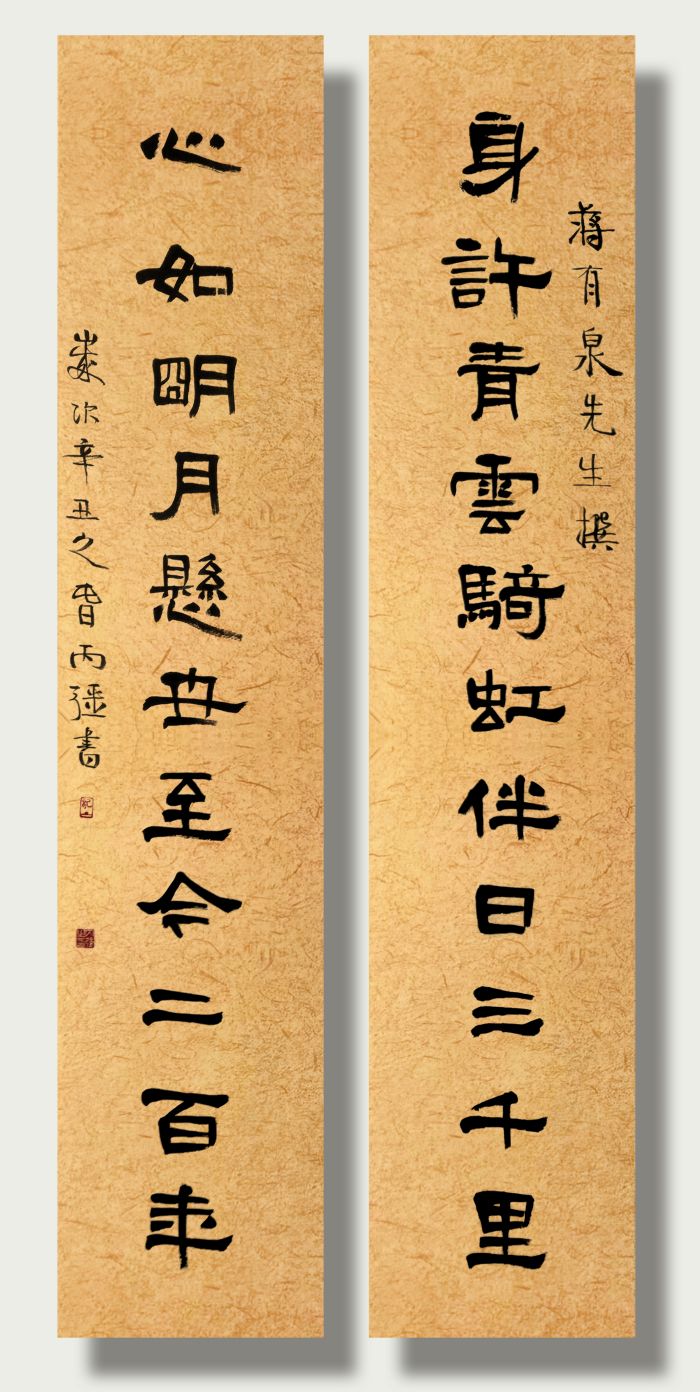 蔣有泉先生撰
身許青雲騎虹伴日三千里
心如朙月懸世至今二百年
歲次辛丑之旾丙彊書